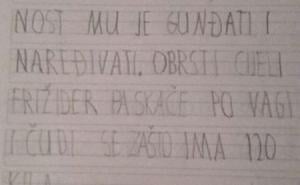 NOST MU JE GUNĐATI I
NAREĐIVATI. OBRSTI CIJELI
FRIŽIDER PA SKAČE PO VAGI
I ČUDI SE ZAŠTO IMA 120
KILA